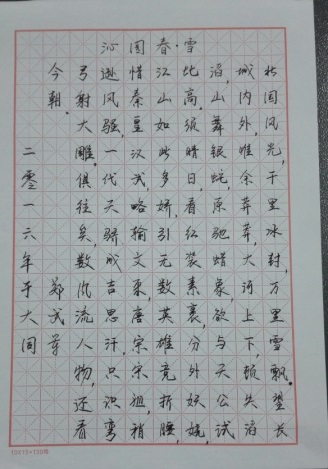 沁园春·雪
北国风光,千里冰封,万里雪飘。望长
城内外,惟余莽莽,大河上下,顿失滔
滔,山舞银蛇,原驰蜡象,欲与天公试
比高。须晴日,看红装素裹,分外妖娆。
江山如此多娇,引无数英雄竞折腰。
惜秦皇汉武,略输文采,唐宗宋祖,稍
逊风骚,一代天骄,成吉思汗,只识弯
弓射大雕。俱往矣,数风流人物,还看
今朝。
郑
二零一六年于大同
10X15=150格